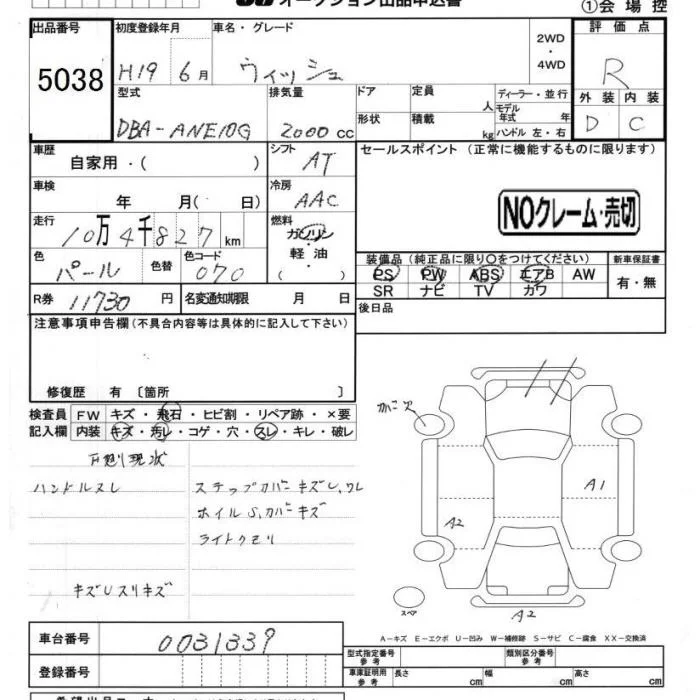 オークション出品申込書
①会場控
出品番号
5038
初度登録年月
H19 6月
車名・グレード
ウィッシュ
2WD
・
4WD
評価点
R
外装 内装
D C
型式
DBA-ANE10G
排気量
2000 cc
ドア
定員
人
ディーラー・並行
モデル
年式 年
形状
積載
kg
ハンドル 左・右
車歴
自家用・( )
シフト
AT
セールスポイント (正常に機能するものに限ります)
NOクレーム・売切
車検
年 月( 日)
冷房
AAC
走行
10万4千827km
燃料
ガソリン
・
軽油
( )
色
パール
色替
色コード
070
装備品(純正品に限り○をつけてください)
PS PW ABS エアB AW
SR ナビ TV カワ
新車保証書
有・無
R券 11730円
名変通知期限 月 日
後日品
注意事項申告欄(不具合内容等は具体的に記入して下さい)
修復歴 有 〔箇所 〕
検査員
記入欄
FW キズ・飛石・ヒビ割・リペア跡・×要
内装 キズ・汚レ・コゲ・穴・スレ・キレ・破レ
ハンドルスレ
ステップカバーキズU,ワレ
ホイルS,カバーキズ
ライトクモリ
キズUスリキズ
A1
A2
スペア
A2
A-キズ E-エクボ U-凹み W-補修跡 S-サビ C-腐食 XX-交換済
車台番号
0031339
登録番号
型式指定番号
参考
類別区分番号
参考
車庫証明用
参考
長さ cm
幅 cm
高さ cm